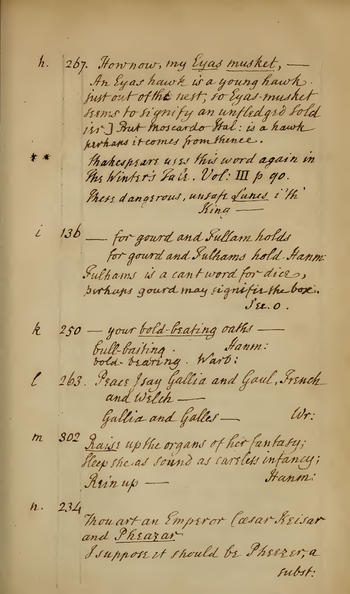 h. 267. How now, my Eyas musket, —
An Eyas hawk is a young hawk
just out of the nest, so Eyas-musket
seems to signify an unfledged Sold
ier] But Moscardo Ital: is a hawk
perhaps it comes from thence.
** Shakespeare uses this word again in
The Winter's Tale. Vol: III p 90.
These dangerous, unsafe Lunes i'th'
King —
i 136 — for gourd and Fullam holds
for gourd and Fulhams hold. Hanm:
Fulhams is a cant word for dice,
perhaps gourd may signifie the box.
See. O.
k 250 — your bold-beating oaths —
bull-baiting. Hanm:
bold-bearing. Warb:
l 263. Peace I say Gallia and Gaul, French
and Welch —
Gallia and Galles — Wr:
m 302 Raise up the organs of her fantasy;
Sleep she as sound as careless infancy;
Rein up — Hanm:
n. 234
Thou art an Emperor Cæsar Keisar
and Pheazar
I suppose it should be Pheezer, a
subst: